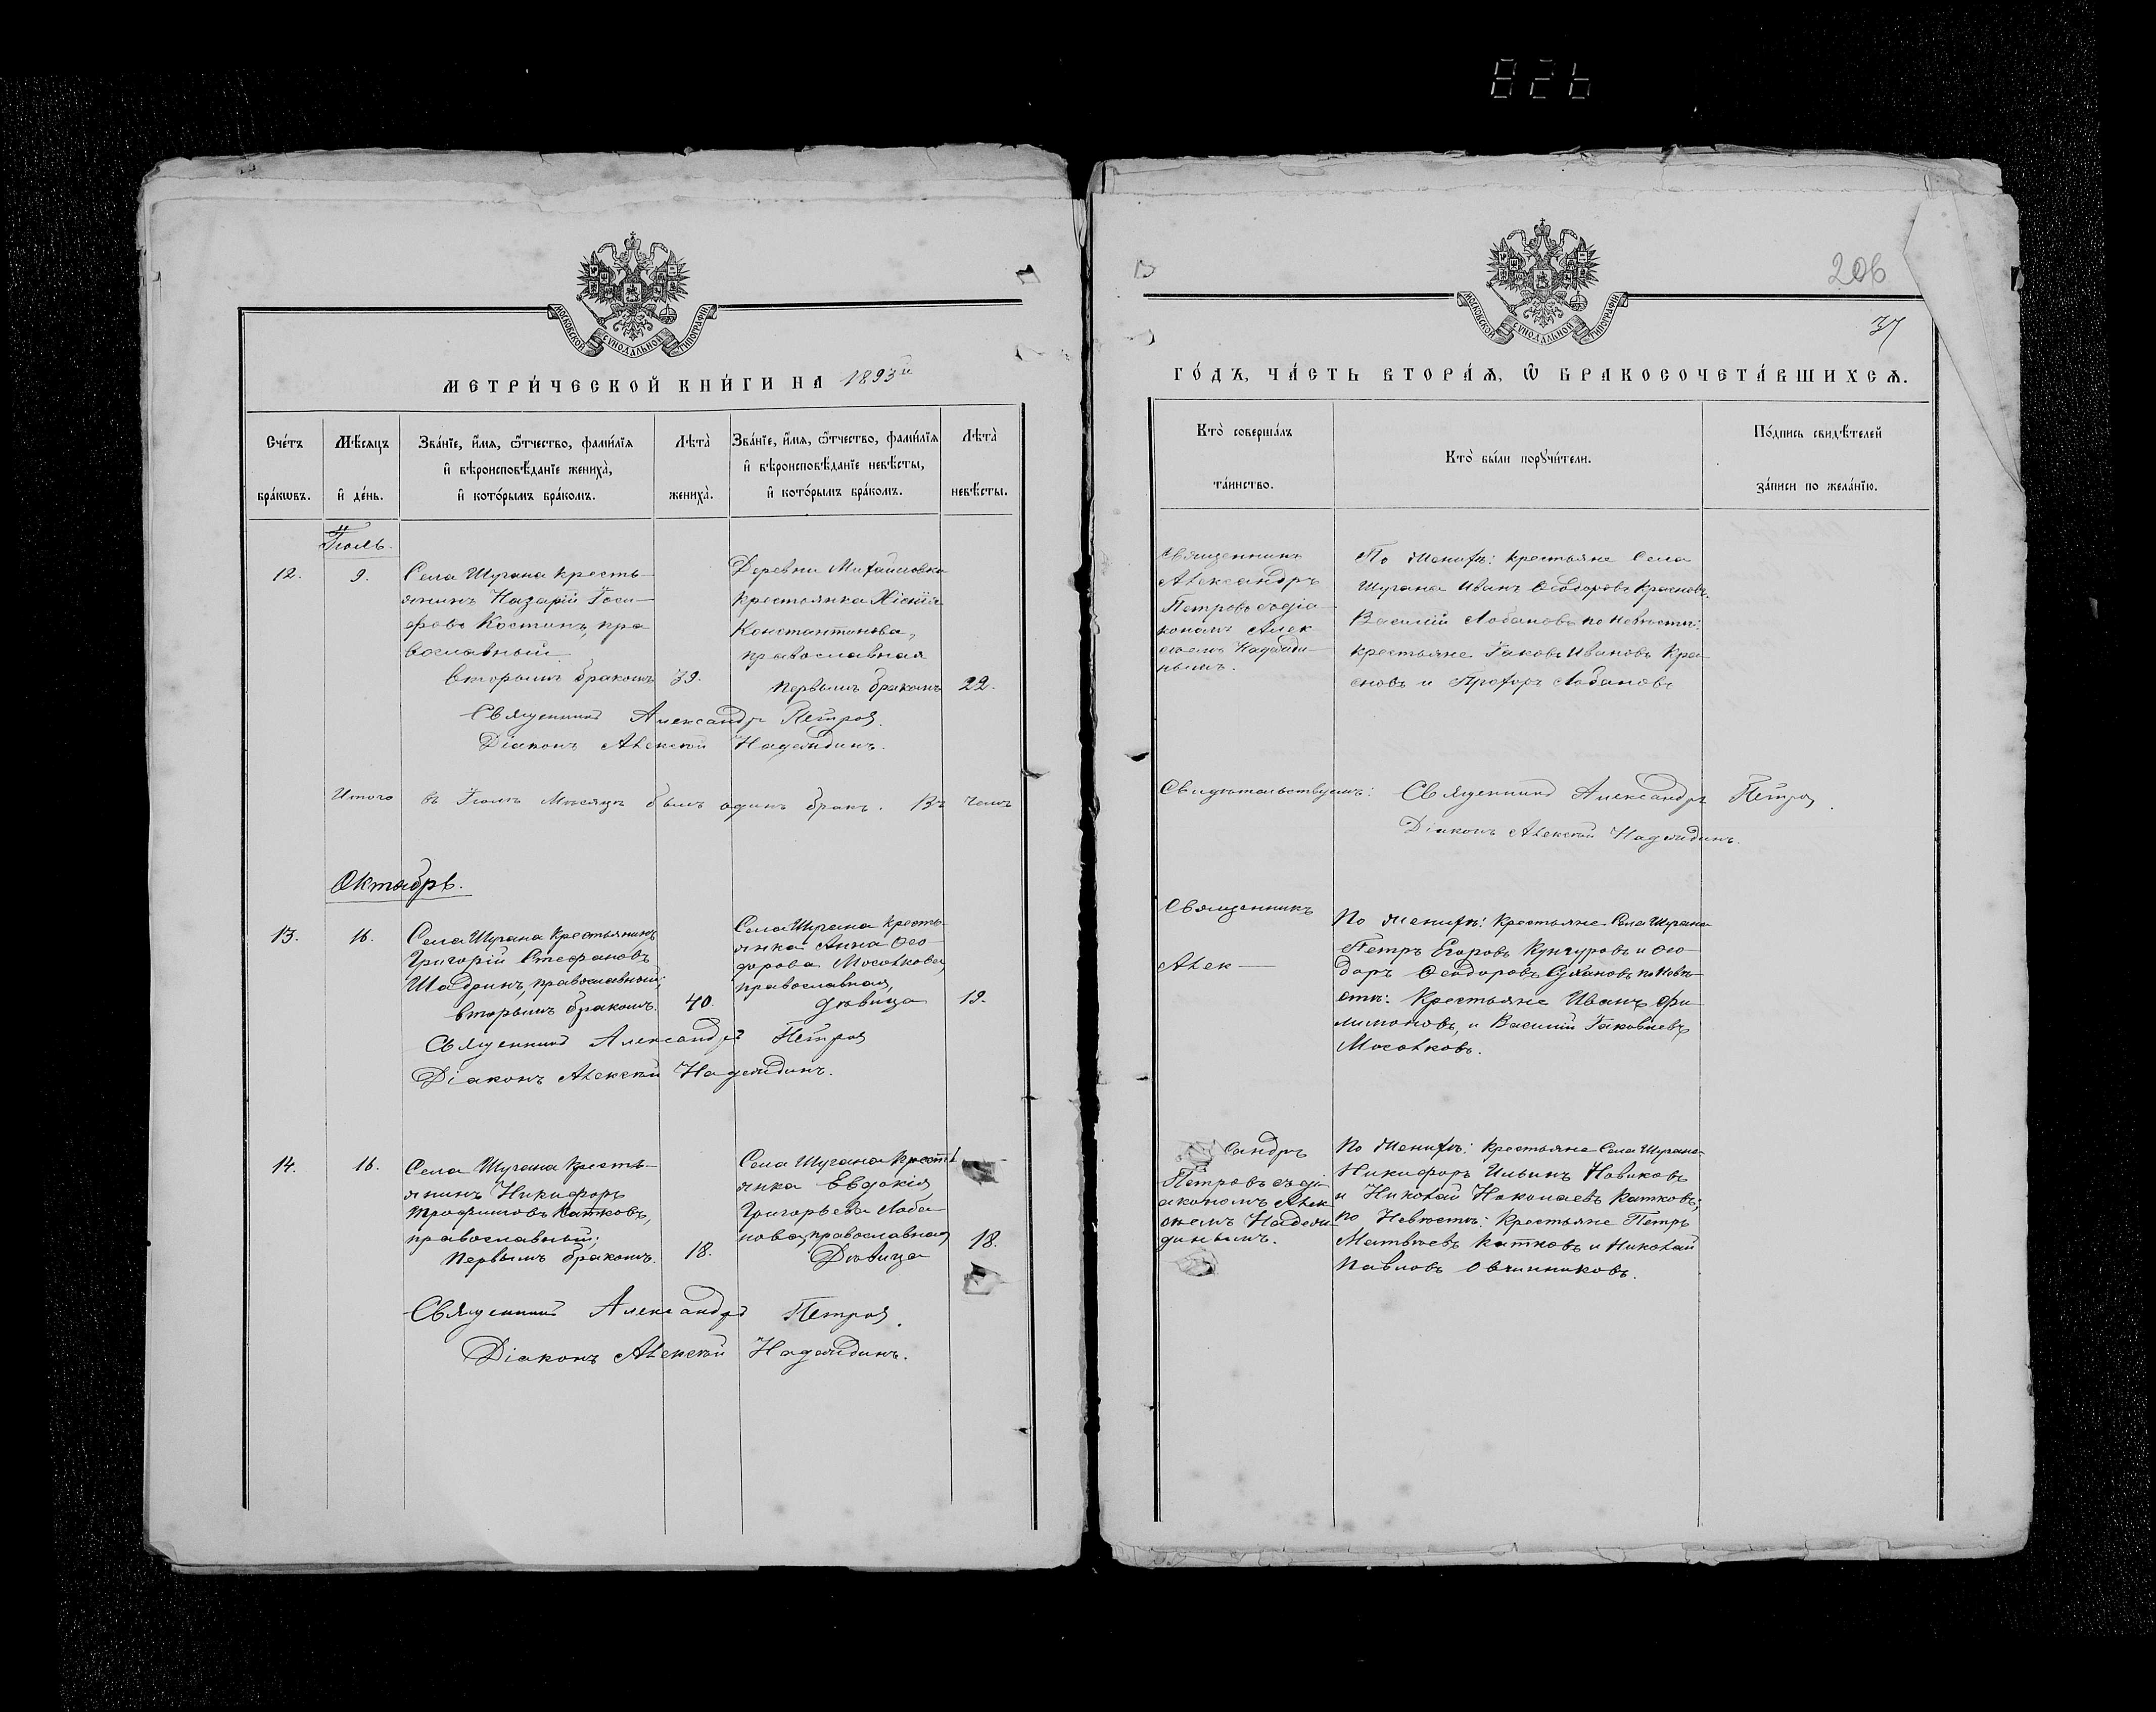 826
МОСКОВСКОЙ СѴНОДАЛЬНОЙ ТИПОГРАФІИ
МЕТРИ́ЧЕСКОЙ КНИ́ГИ НА 1893й
Сче́тъ бра́кѡвъ.
Мѣ́сяцъ и҆ де́нь.
Зва́нїе, и҆́мя, ѿтчество, фами́лїя
и҆ вѣроисповѣ́данїе жениха̀,
и҆ кото́рымъ бра́комъ.
Лѣта̀
жениха̀.
Зва́нїе, и҆́мя, ѿтчество, фами́лїя
и҆ вѣроисповѣ́данїе невѣ́сты,
и҆ кото́рымъ бра́комъ.
Лѣта̀
невѣ́сты.
Іюль.
12.
9.
Села Шугана кресть-
янинъ Назарій Іоси-
фовъ Костинъ, пра
вославный
вторымъ бракомъ
39.
Деревни Михайловки
крестьянка
Константинова,
православная
первымъ бракомъ
22.
Священникъ Александръ Петровъ.
Діаконъ Алексѣй Надеждинъ.
Итого въ Іюлѣ мѣсяцѣ былъ одинъ бракъ. Въ чемъ
Октябрь.
13.
16.
Села Шугана крестьянинъ
Григорій Стефановъ
Шадринъ, православный;
вторымъ бракомъ.
40.
Села Шугана кресть-
янка Анна Ѳео-
дорова Мосолкова,
православная,
дѣвица
19.
Священникъ Александръ Петровъ
Діаконъ Алексѣй Надеждинъ.
14.
16.
Села Шугана кресть-
янинъ Никифоръ
Трофимовъ Катковъ,
православный;
первымъ бракомъ.
18.
Села Шугана кресть
янка Евдокія
Григорьева Лоба-
нова, православная
Дѣвица
18.
Священникъ Александръ Петровъ.
Діаконъ Алексѣй Надеждинъ.
206
37
МОСКОВСКОЙ СѴНОДАЛЬНОЙ ТИПОГРАФІИ
ГО́ДЪ, ЧА́СТЬ ВТОРА́Ѧ, Ѡ҆ БРАКОСОЧЕТА́ВШИХСѦ.
Кто̀ соверша́лъ
та́инство.
Кто̀ бы́ли порꙋчи́тели.
По́дпись свидѣ́телей
за́писи по жела́нїю.
Священникъ
Александръ
Петровъ съ діа-
кономъ Алек
сѣемъ Надежди-
нымъ.
По женихѣ: крестьяне Села
Шугана Иванъ Ѳеодоровъ Красновъ,
Василій Лобановъ по невѣстѣ:
крестьяне Іаковъ Ивановъ Кра-
сновъ и Прохоръ Лобановъ
Свидѣтельствуемъ: Священникъ Александръ Петровъ.
Діаконъ Алексѣй Надеждинъ.
Священникъ
Алек-
По женихѣ: крестьяне Села Шугана
Петръ Егоровъ Кунгуровъ и Ѳео-
доръ Ѳеодоровъ Сухановъ по невѣ-
стѣ: Крестьяне Иванъ Фи-
лимоновъ, и Василій Іаковлевъ
Мосолковъ.
сандръ
Петровъ съ ді-
акономъ Алек-
сѣемъ Надеж-
динымъ.
По женихѣ: крестьяне Села Шугана
Никифоръ Ильинъ Новиковъ
и Николай Николаевъ Катковъ;
по Невѣстѣ: Крестьяне Петръ
Матвѣевъ Катковъ и Николай
Павловъ Овчинниковъ.